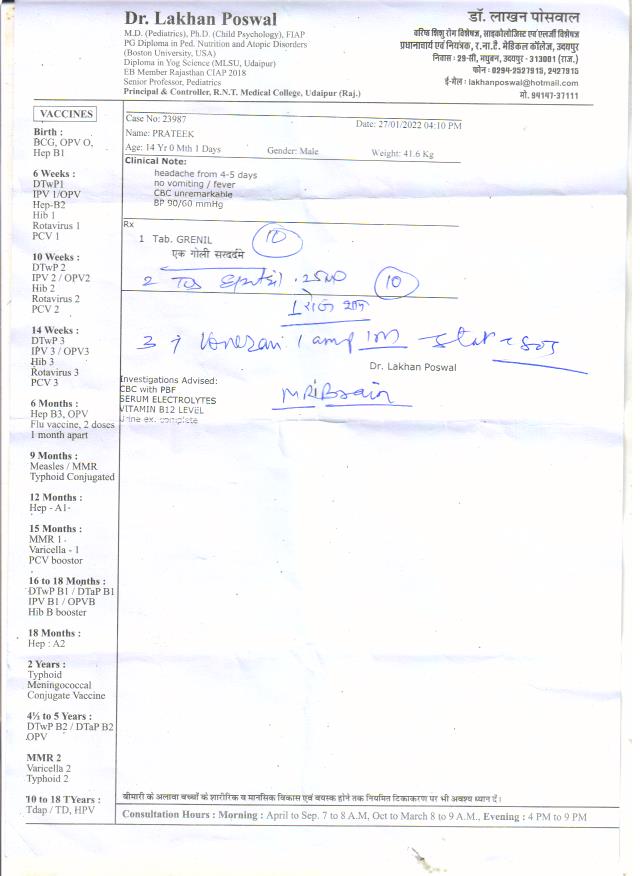 Dr. Lakhan Poswal
M.D. (Pediatrics), Ph.D. (Child Psychology), FIAP
PG Diploma in Ped. Nutrition and Atopic Disorders
(Boston University, USA)
Diploma in Yog Science (MLSU, Udaipur)
EB Member Rajasthan CIAP 2018
Senior Professor, Pediatrics
Principal & Controller, R.N.T. Medical College, Udaipur (Raj.)
डॉ. लाखन पोसवाल
वरिष्ठ शिशु रोग विशेषज्ञ, साइकोलोजिस्ट एवं एलर्जी विशेषज्ञ
प्रधानाचार्य एवं नियंत्रक, र.ना.टै. मेडिकल कॉलेज, उदयपुर
निवास : 29-सी, मधुबन, उदयपुर - 313001 (राज.)
फोन : 0294-2527915, 2427915
ई-मैल : lakhanposwal@hotmail.com
मो. 94147-37111
VACCINES
Birth :
BCG, OPV O,
Hep B1
6 Weeks :
DTwP1
IPV 1/OPV
Hep-B2
Hib 1
Rotavirus 1
PCV 1
10 Weeks :
DTwP 2
IPV 2 / OPV2
Hib 2
Rotavirus 2
PCV 2
14 Weeks :
DTwP 3
IPV 3 / OPV3
Hib 3
Rotavirus 3
PCV 3
6 Months :
Hep B3, OPV
Flu vaccine, 2 doses
1 month apart
9 Months :
Measles / MMR
Typhoid Conjugated
12 Months :
Hep - A1-
15 Months :
MMR 1
Varicella - 1
PCV boostor
16 to 18 Months :
DTwP B1 / DTaP B1
IPV B1 / OPVB
Hib B booster
18 Months :
Hep : A2
2 Years :
Typhoid
Meningococcal
Conjugate Vaccine
4½ to 5 Years :
DTwP B2 / DTaP B2
OPV
MMR 2
Varicella 2
Typhoid 2
10 to 18 TYears :
Tdap / TD, HPV
Case No: 23987
Date: 27/01/2022 04:10 PM
Name: PRATEEK
Age: 14 Yr 0 Mth 1 Days Gender: Male Weight: 41.6 Kg
Clinical Note:
headache from 4-5 days
no vomiting / fever
CBC unremarkable
BP 90/60 mmHg
Rx
1 Tab. GRENIL 10
एक गोली सरदर्दमे
2 10
1 रोज शाम
3 1 amp IM Stat SOS
Dr. Lakhan Poswal
MRI Brain
Investigations Advised:
CBC with PBF
SERUM ELECTROLYTES
VITAMIN B12 LEVEL
Urine ex. complete
बीमारी के अलावा बच्चों के शारीरिक व मानसिक विकास एवं वयस्क होने तक नियमित टिकाकरण पर भी अवश्य ध्यान दें।
Consultation Hours : Morning : April to Sep. 7 to 8 A.M, Oct to March 8 to 9 A.M., Evening : 4 PM to 9 PM